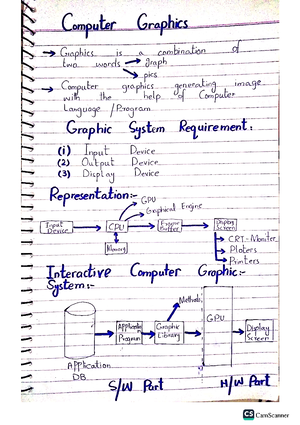 Computer Graphics
→ Graphics is a combination of
two words → graph
→ pics
→ Computer graphics generating image
with the help of Computer
Language / Program.
Graphic System Requirement:
(1) Input Device
(2) Output Device
(3) Display Device
Representation:-
→ GPU
→ Graphical Engine
Input Device
CPU
Frame Buffer
Display Screen
Memory
→ CRT-Moniter
→ Ploters
→ Printers
Interactive Computer Graphic:-
System:-
Methods
GPU
Application Program
Graphic Library
Display Screen
Application
DB
S/W Part
H/W Part
CS CamScanner